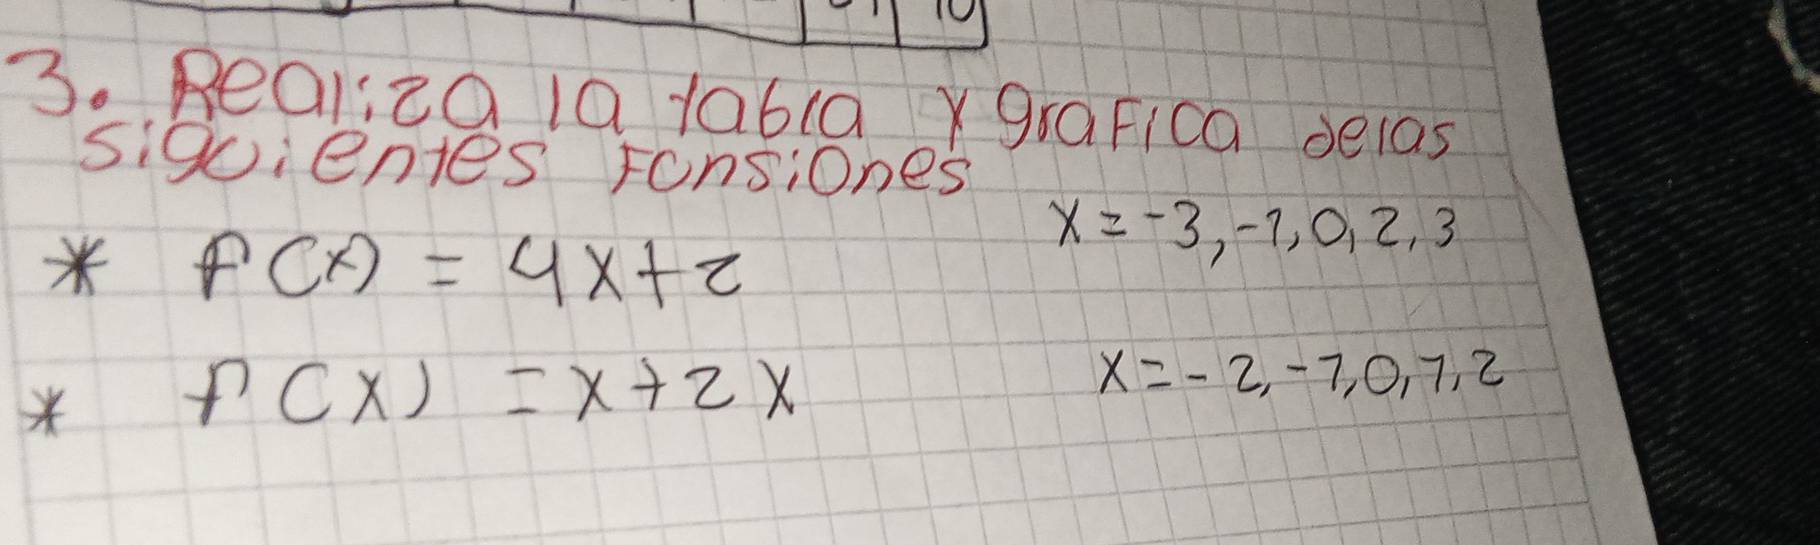 3. Realiza la tabla y grafica delas
siguientes Funsiones
x = -3, -1, 0, 2, 3
* f(x) = 4x+2
* f(x) = x+2x
x = -2, -1, 0, 1, 2